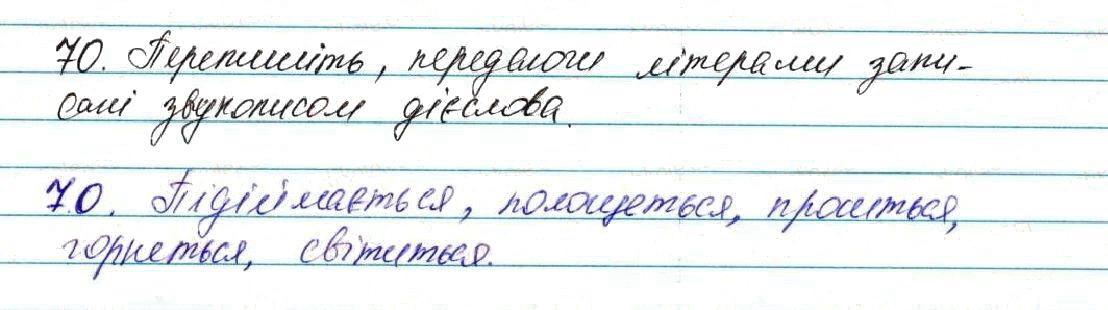 70. Перепишіть, передаючи літерами запи-
сані звукописом дієслова.
70. Підіймається, полощеться, проситься,
горнеться, світиться.